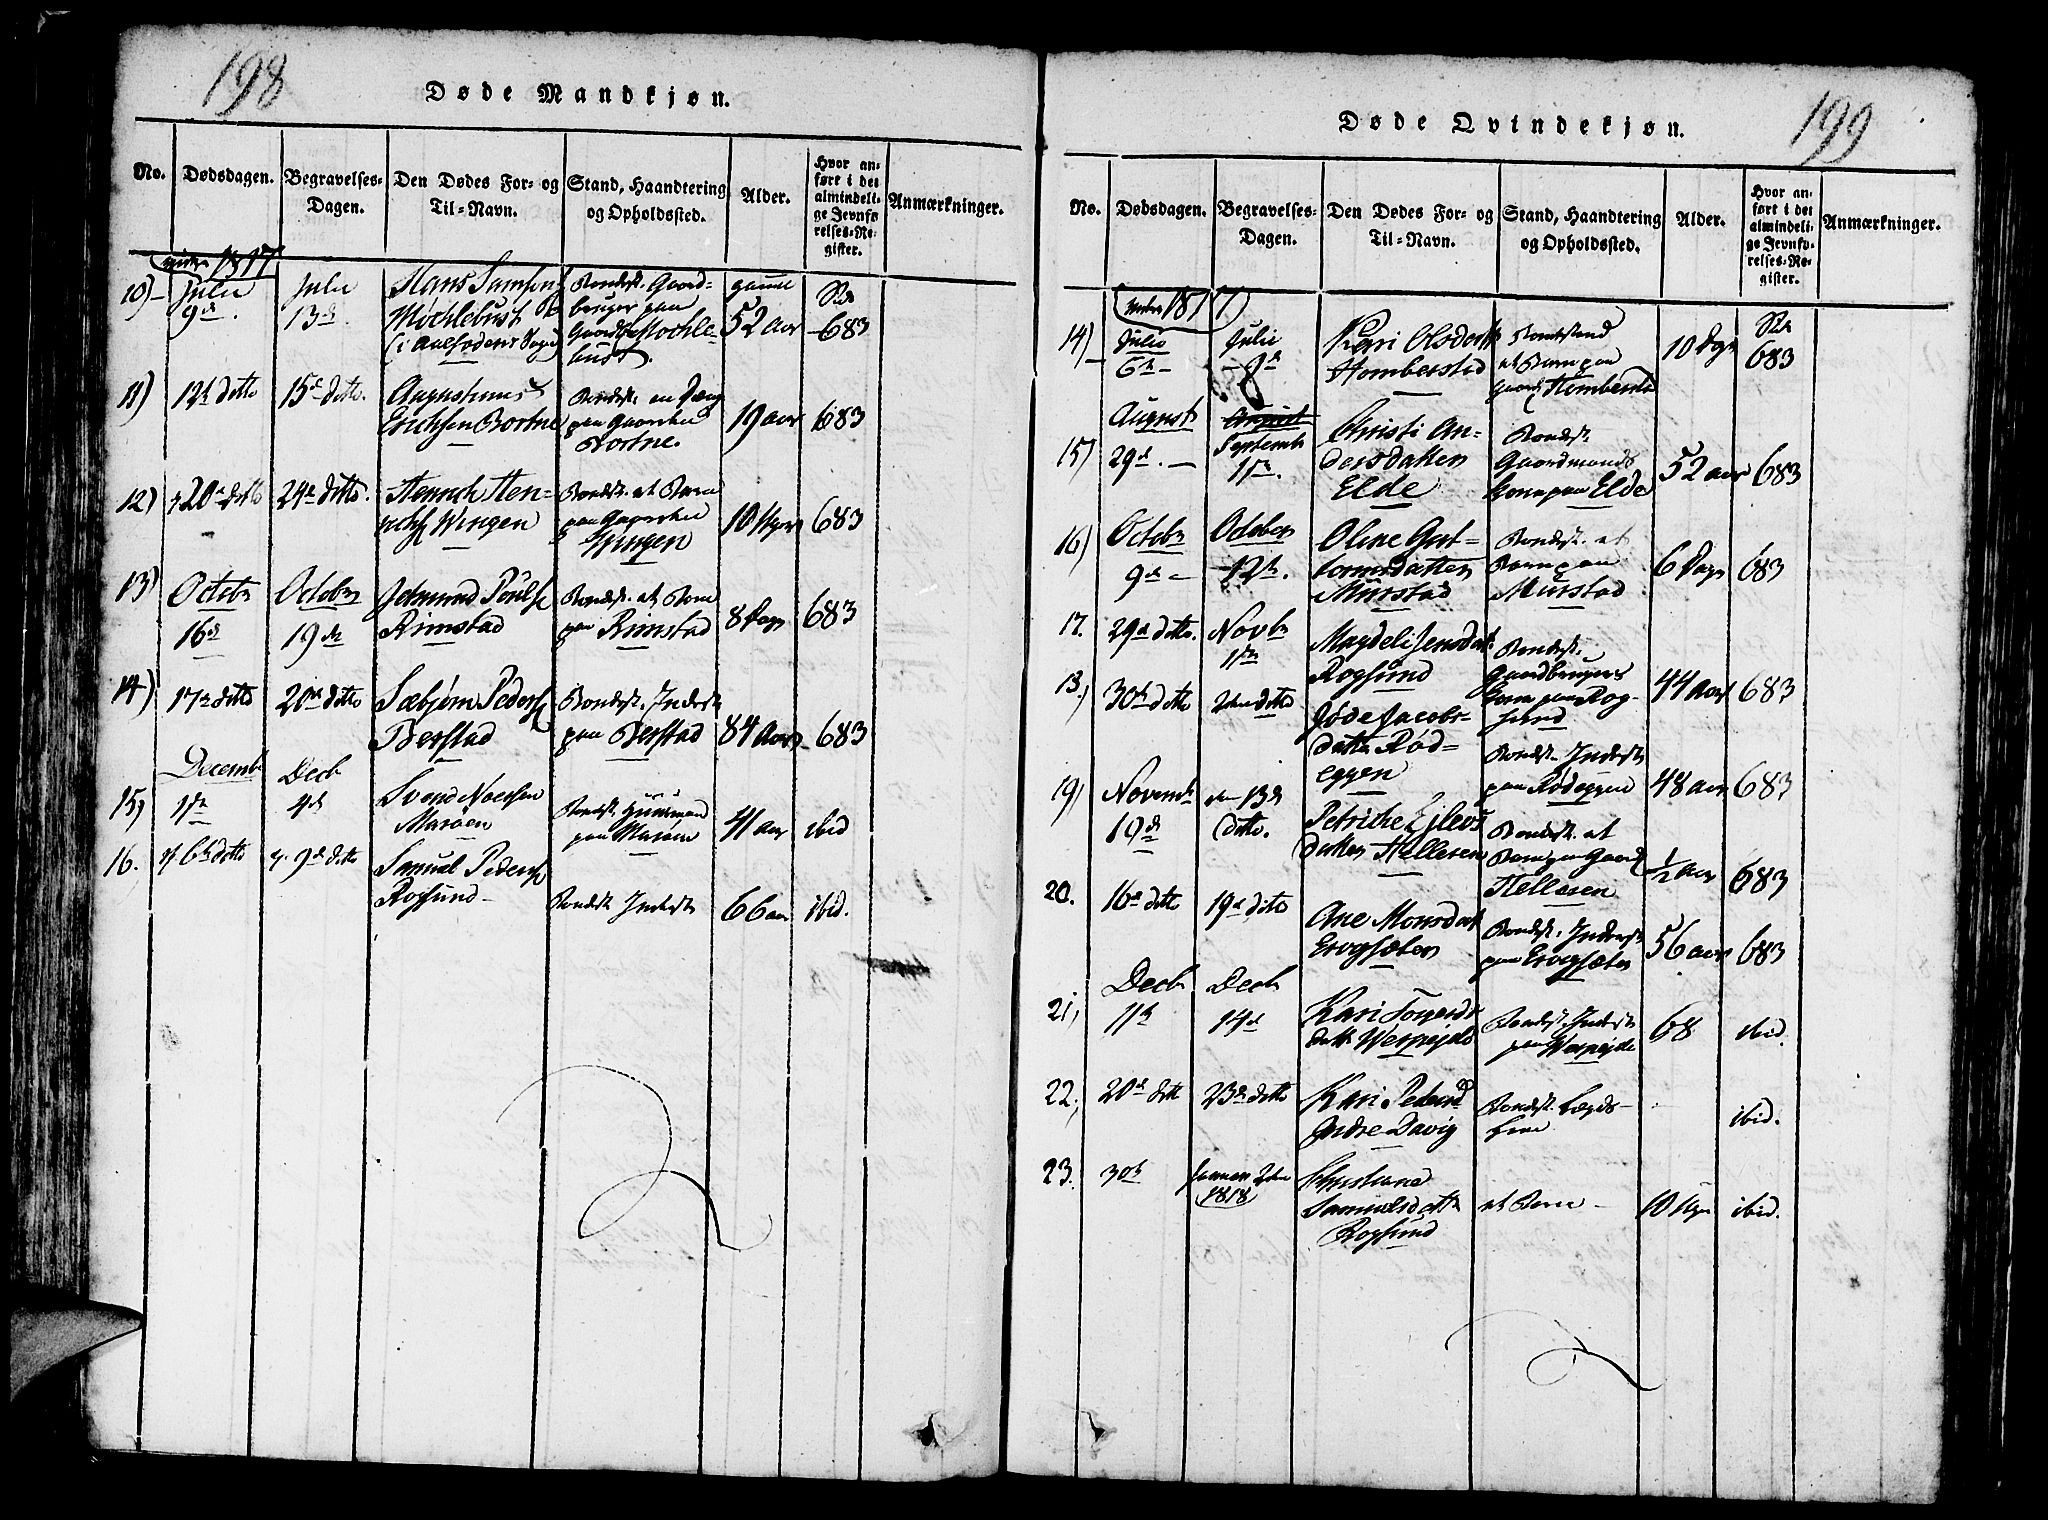 198
Døde Mandkjøn.
No.
Dødsdagen.
Begravelses-
Dagen.
Den Dødes For- og
Til-Navn.
Stand, Haandtering
og Opholdssted.
Alder.
Hvor an-
ført i det
almindeli-
ge Jevnfø-
relses-Re-
gister.
Anmærkninger.
1817
10)
Julii
9de
Julii
13de
Hans Samson
Bondest. Gaard-
bruger paa
52 aar
683
11)
12te ditto
15de ditto
Augustinus
Erichsen Bortne
paa Gaarden
Bortne.
19 aar
683
12)
20de ditto
24de ditto.
Henrich Hen-
richs Wingen
Bondest. et Barn
paa Gaarden
Wingen
10 Uger
683
13)
Octobr
16de
October
19de
Jetmund Pouls
Rimstad
Bondest. et Barn
paa Rimstad
8 Dage
683
14)
17de ditto
20de ditto
Sæbjørn Peders
Berstad
Bondest. Inderst
paa Berstad
84 Aar
683
15)
Decemb
1ste
Decb
4de
Svend
Maraaen
Bondest. Huusmand
paa
41 aar
ibid
16.
6te ditto
9de ditto
Samuel Peders
Rogsund
Bondest. Inderst
66 aar
ibid.
199
Døde Qvindekjøn.
No.
Dødsdagen.
Begravelses-
Dagen.
Den Dødes For- og
Til-Navn.
Stand, Haandtering
og Opholdssted.
Alder.
Hvor an-
ført i det
almindeli-
ge Jevnfø-
relses-Re-
gister.
Anmærkninger.
1817
14)
Julio
6te
Julii
Kari Olsdatt
Homberstad
Bondestand
et Barn paa
10 Dage
683
15)
August
29de
August
Septemb
1ste
Christi An-
dersdatten
Elde
Bondest.
Gaardmands
Kone paa Elde
52 aar
683
16)
October
9de
October
12te.
Oline Gut-
tormsdatten
Murstad
Bondest. et
Barn paa
Murstad
6 Dage
683
17.
29de ditto.
Novbr
1ste
Magdeli Jensdat
Rogsund
Bondest.
Gaardbrugers
Kone paa Rog-
sund
44 Aar
683
18)
30te ditto
2den ditto
Jøde Jacobs-
datten Rød-
eggen
Bondest. Inderst
paa Rødeggen
48 aar
683
19)
Novemb
10de
den 13de
ditto.
Petriche Ejlevs
datten Hellesen
Bondest. et
Barn paa Gaard
Hellesen
1/2 aar
683
20.
16de ditto
19de ditto
Ane Monsdat
Bondest. Inderst
56 aar
683
21)
Decbr
11te
Decbr
14de
Kari
datt.
Bondest. Inderst
68
ibid.
22.
20de ditto
23de ditto
Kari Pedersd
Indre Davig
Bondest. Lægds-
ibid.
23.
30te
Januar 2den
1818
Christiane
Samuelsdatt
Rogsund
et Barn
10 Uger
ibid.